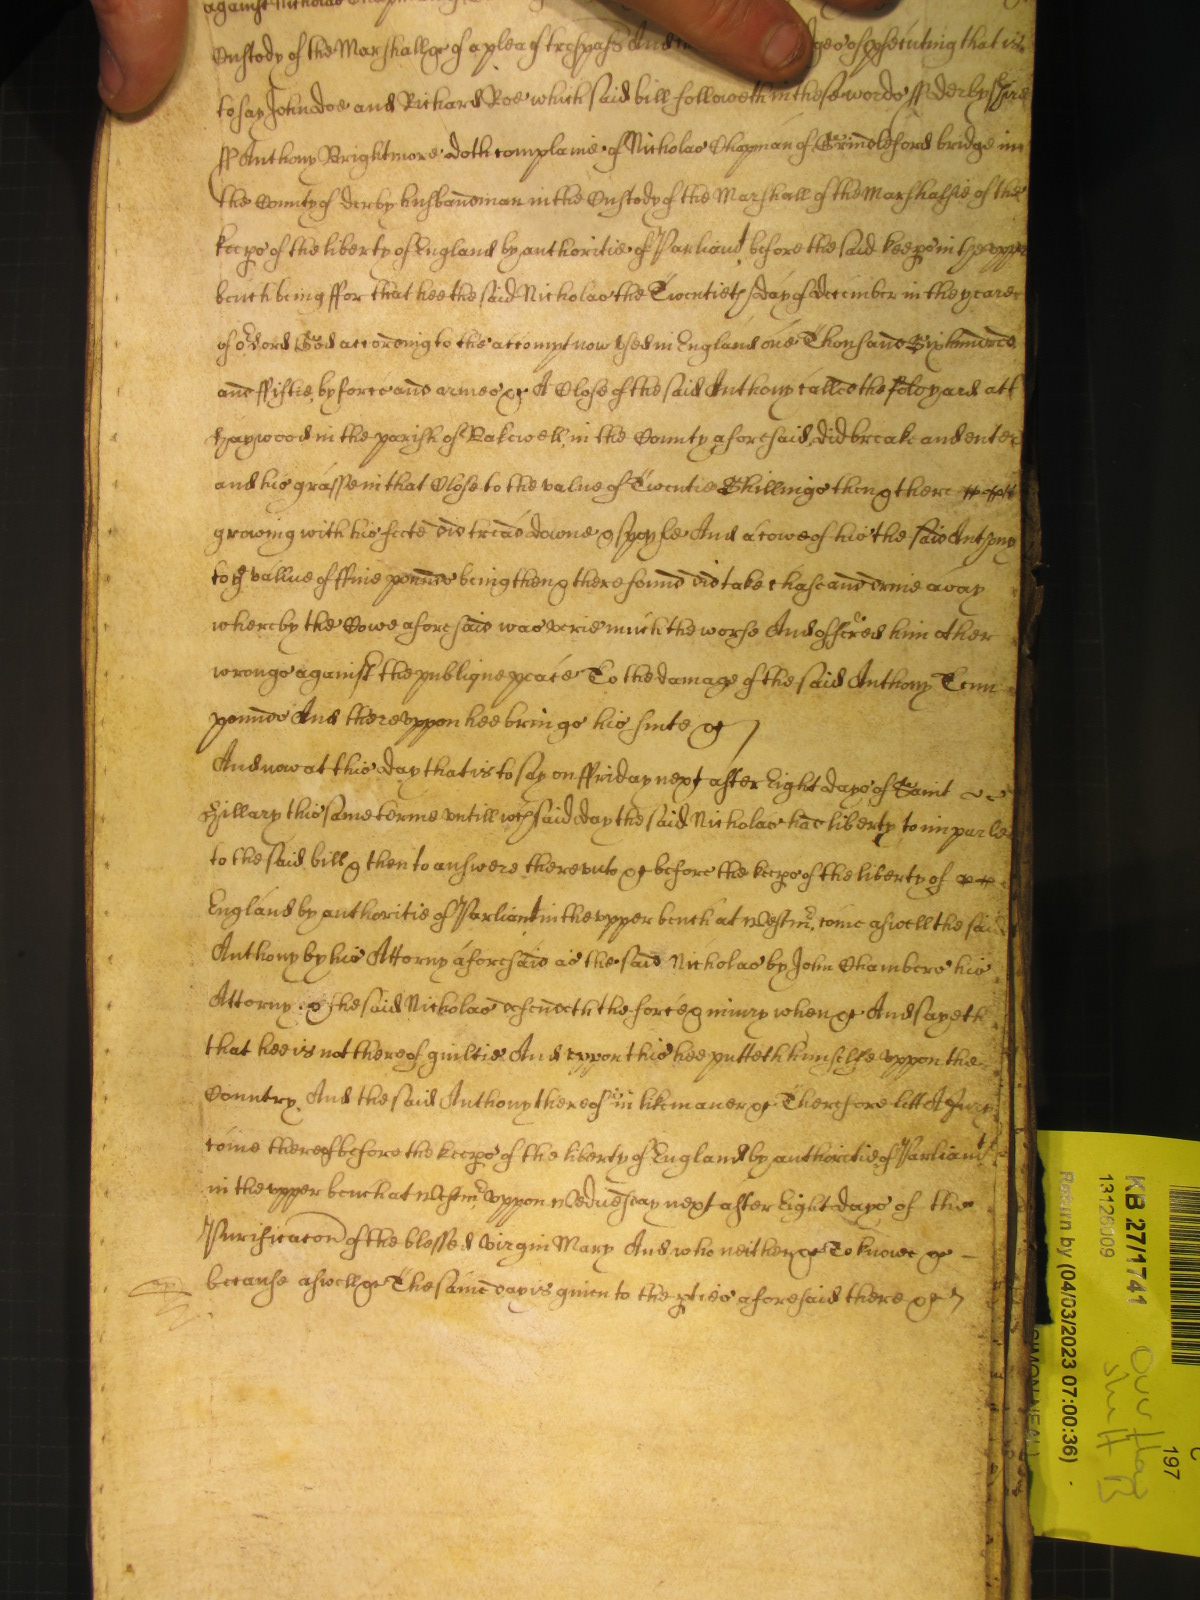 against Nicholas
Custody of the Marshall &c of a plea of trespass And ges of psecuting that is
to say John doe and Richard Roe which said bill followeth in these wordes ss derbyshire
ss Anthony Brightmore doth complaine of Nicholas Chapman of Grindleford bridge in
the County of derby husbandman in the Custody of the Marshall of the Marshalsie of the
keeps of the liberty of England by authoritie of Parliamt before the said keeps in the upper
bench being ffor that hee the said Nicholas the Twentieth day of december in the yeare
of or Lord God according to the accompt now used in England one Thousand Six hundred
and ffiftie by force and armes &c A Close of the said Anthony called the yard att
Haywood in the parish of Bakewell in the County aforesaid did breake and enter
and his grasse in that Close to the value of Twentie Shillings then & there
growing with his feete did tread downe & spoyle And a cowe of his the said Anthony
to ye vallue of ffive pounds being then & there found did take chase and drive away
whereby the Cowe aforesaid was verie much the worse And offered him other
wronges against the publique peace To the damage of the said Anthony Tenn
pounds And thereuppon hee bringes his suite &c
And now at this day that is to say on ffriday next after Eight dayes of Saint
Hillary this same terme untill wch said day the said Nicholas had liberty to imparle
to the said bill & then to answere thereunto &c before the keeps of the liberty of
England by authoritie of Parliamt in the upper bench at Westmr come aswell the said
Anthony by his Attorny aforesaid as the said Nicholas by John Chambers his
Attorny & the said Nicholas defendeth the force & iniury when &c And sayeth
that hee is not thereof guiltie And uppon this hee putteth himselfe uppon the
Country And the said Anthony thereof in like maner &c Therefore lett A Jury
come thereof before the keeps of the liberty of England by authoritie of Parliamt
in the upper bench at Westmr uppon Wednesday next after Eight dayes of the
Purificacon of the blessed Virgin Mary And who neither &c To knowe &c
because aswell &c The same day is given to the pties aforesaid there &c
KB 27/1741
13126009
Return by (04/03/2023 07:00:36)
SIMON NEAL
197
C